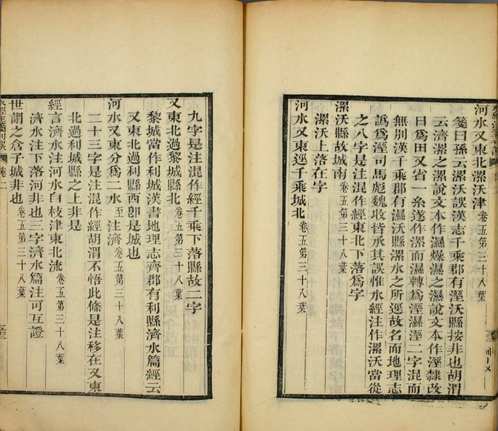 河水又東北漯沃津卷五第三十八葉
箋曰孫云漯沃誤漢志千乘郡有溼沃縣按非也胡渭
云濟漯之漯說文本作濕燥濕之濕說文本作溼隸改
曰爲田又省一糸遂作漯而濕轉爲溼濕溼二字混而
無別漢千乘郡有濕沃縣漯水之所逕故名而地理志
爲溼司馬彪魏收皆承其誤惟水經注作漯沃當從
之八字是注混作經東北下落爲字
漯沃縣故城南卷五第三十八葉
漯沃上落在字
河水又東逕千乘城北卷五第三十八葉
九字是注混作經千乘下落縣故二字
又東北過黎城縣北卷五第三十八葉
黎城當作利城漢書地理志齊郡有利縣濟水篇經云
又東北過利縣西卽是城也
河水又東分爲二水至注濟卷五第三十八葉
二十三字是注混作經胡渭不悟此條是注移在又東
北過利城縣之上非是
經言濟水注河水自枝津東北流卷五第三十八葉
濟水注下落河非也三字濟水篇注可互證
世謂之倉子城非也卷五第三十八葉